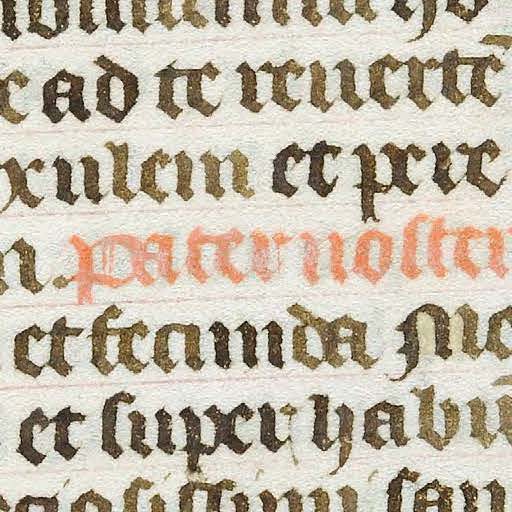 ad te reuertē
xulem et pere
n. pater noster
et fecunda me
et super habū